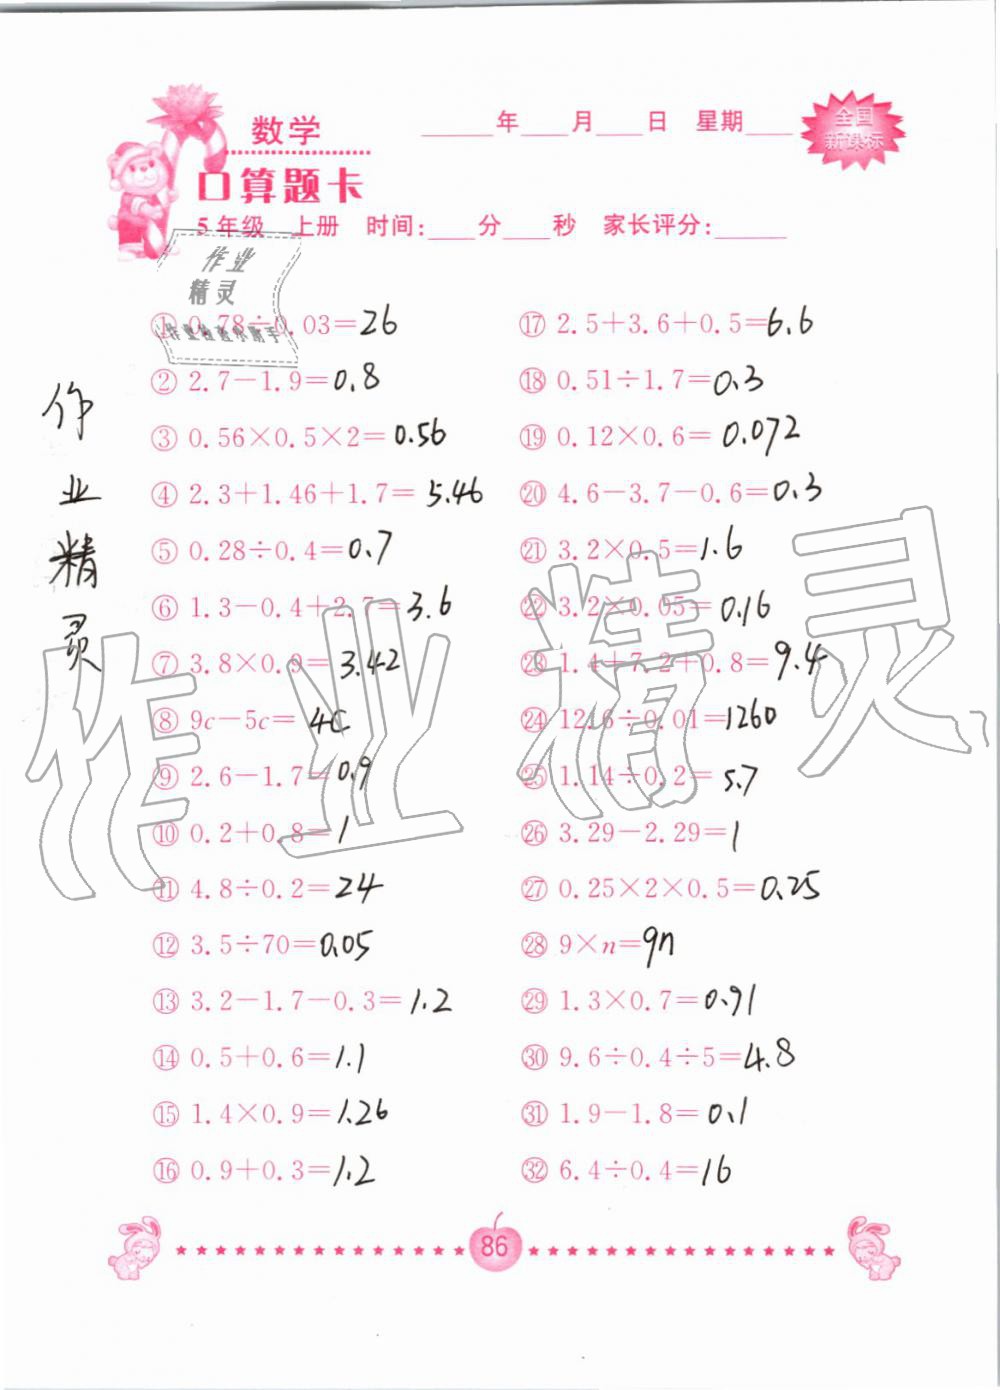 数学
____年____月____日 星期____
全国
新课标
口算题卡
5年级 上册 时间:____分____秒 家长评分:______
作业
精灵
作业检查小助手
① 0.78÷0.03=26
② 2.7-1.9=0.8
③ 0.56×0.5×2=0.56
④ 2.3+1.46+1.7=5.46
⑤ 0.28÷0.4=0.7
⑥ 1.3-0.4+2.7=3.6
⑦ 3.8×0.9=3.42
⑧ 9c-5c=4c
⑨ 2.6-1.7=0.9
⑩ 0.2+0.8=1
⑪ 4.8÷0.2=24
⑫ 3.5÷70=0.05
⑬ 3.2-1.7-0.3=1.2
⑭ 0.5+0.6=1.1
⑮ 1.4×0.9=1.26
⑯ 0.9+0.3=1.2
⑰ 2.5+3.6+0.5=6.6
⑱ 0.51÷1.7=0.3
⑲ 0.12×0.6=0.072
⑳ 4.6-3.7-0.6=0.3
㉑ 3.2×0.5=1.6
㉒ 3.2×0.05=0.16
㉓ 1.4+7.2+0.8=9.4
㉔ 12.6÷0.01=1260
㉕ 1.14÷0.2=5.7
㉖ 3.29-2.29=1
㉗ 0.25×2×0.5=0.25
㉘ 9×n=9n
㉙ 1.3×0.7=0.91
㉚ 9.6÷0.4÷5=4.8
㉛ 1.9-1.8=0.1
㉜ 6.4÷0.4=16
作业精灵
作业精灵
86